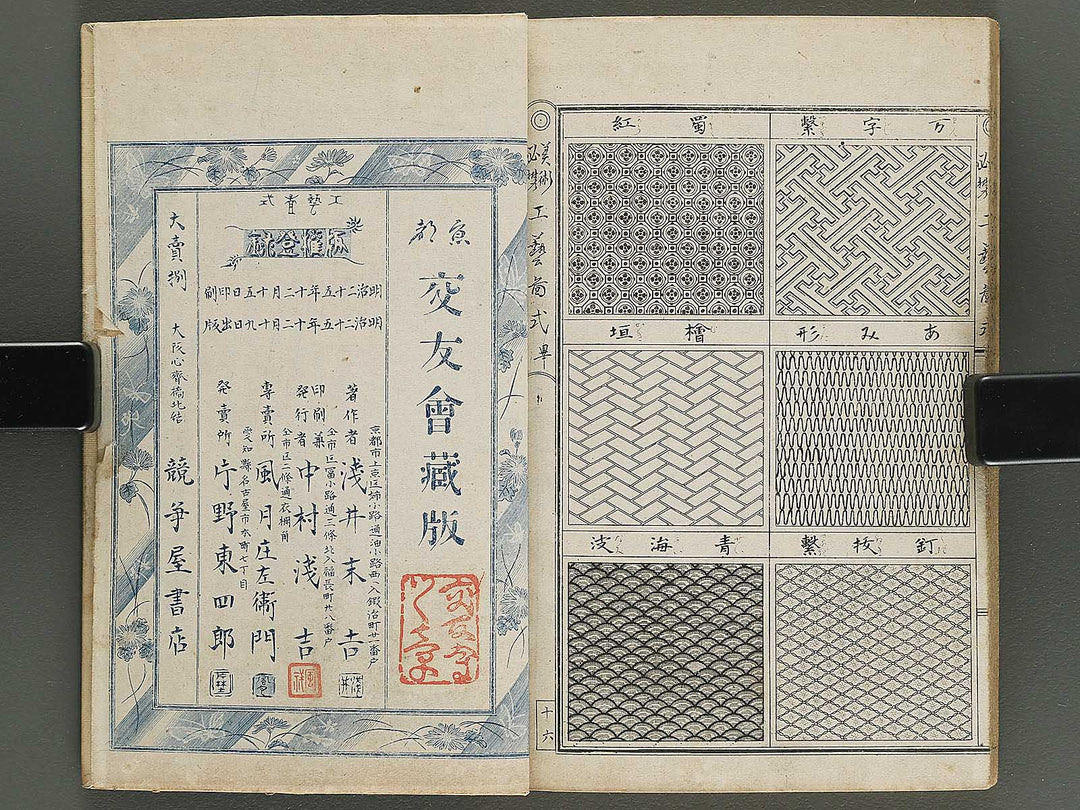 万字繋
蜀紅
あみ形
檜垣
釘抜繋
青海波
美術
必携
工藝啚式
畢
十六
京都
交友會藏版
工藝啚式
明治二十五年二十月十五日印刷
明治二十五年二十月十九日出版
京都市上京区姉小路通油小路西入鍛冶町廿一番戸
著作者 淺井末吉
仝市区冨小路通三條北入福長町廿八番戸
印刷兼
発行者 中村淺吉
仝市区二條通衣棚角
専賣所 風月庄左衛門
愛知縣名古屋市本町七丁目
発賣所 片野東四郎
大賣捌 大阪心齊橋北詰 競争屋書店
淺井